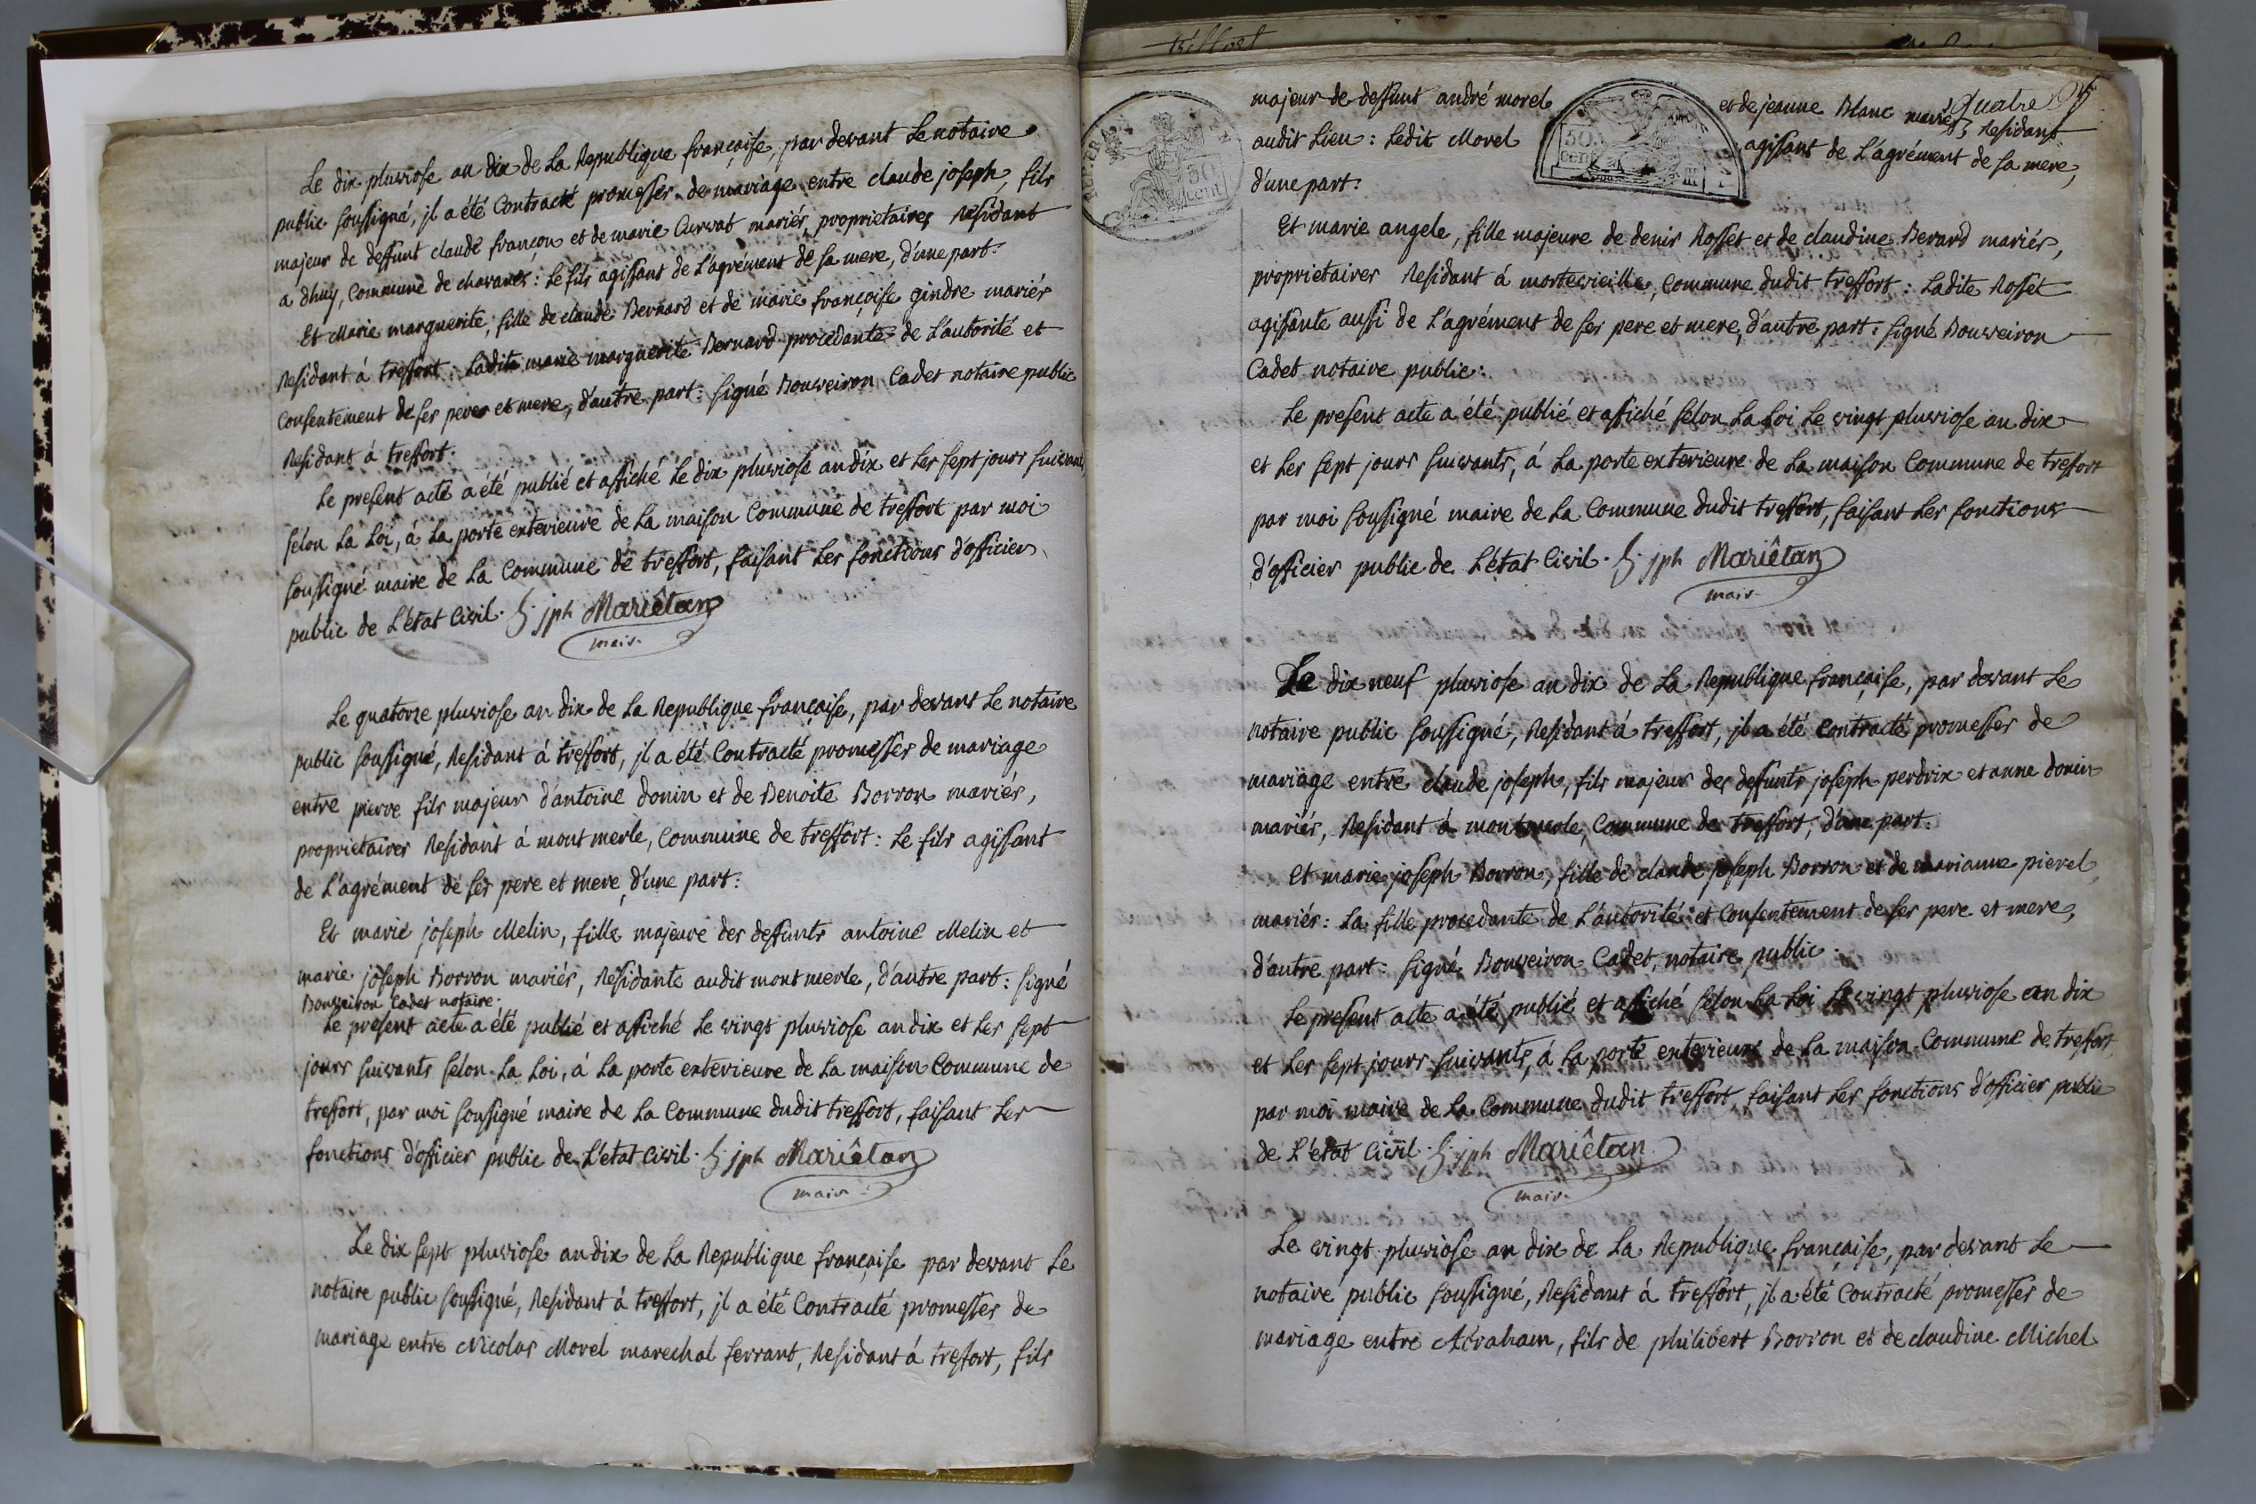 Le dix pluviose an dix de La Republique françaife, par devant Le notaire
public fouffigné, jl a été Contracté promeffes de mariage entre claude jofeph, fils
majeur de deffunt claude françon et de marie Curvat mariés, proprietaires Refidant
a dhuy, Commune de chavanes : Le fils agiffant de L'agrément de fa mere, d'une part.
Et Marie marguerite, fille de claude Bernard et de marie françoife gindre mariés
Refidant á treffort : Ladite marie marguerite Bernard procedante de L'autorité et
Confentement de fes peres et mere, d'autre part : figné Bouveiron Cadet notaire public
Refidant á treffort.
Le prefent acte a été publié et affiché Le dix pluviose an dix et Les fept jours fuivants,
felon La Loi, á La porte exterieure de La maifon Commune de treffort par moi
fouffigné maire de La Commune de treffort, faifant Les fonctions d'officier
public de L'état Civil. jph Mariêtan
maire
Le quatorze pluviofe an dix de La Republique françaife, par devant Le notaire
public fouffigné, Refidant á treffort, jl a été Contracté promeffes de mariage
entre pierre fils majeur d'antoine donin et de Benoite Borron mariés,
proprietaires Refidant á mont merle, Commune de treffort : Le fils agiffant
de L'agrément de fes pere et mere, d'une part :
Et marie jofeph Melin, fille majeure des deffunts antoine Melin et
marie jofeph Borron mariés, Refidante audit mont merle, d'autre part : figné
Bouveiron Cadet notaire.
Le prefent acte a été publié et affiché Le vingt pluviofe an dix et Les fept
jours fuivants felon La Loi, á La porte exterieure de La maifon Commune de
treffort, par moi fouffigné maire de La Commune dudit treffort, faifant Les
fonctions d'officier public de L'état Civil. jph Mariêtan
maire
Le dix fept pluviofe an dix de La Republique françaife par devant Le
notaire public fouffigné, Refidant á treffort, jl a été Contracté promeffes de
mariage entre Nicolas Morel marechal ferrant, Refidant á treffort, fils
majeur de deffunt andré morel et de jeanne Blanc mariés Refidant
Quatre
audit Lieu : Ledit Morel agiffant de L'agrément de fa mere,
d'une part :
50 cent
50 cent
Et marie angele, fille majeure de denis Roffet et de claudine Berard mariés,
proprietaires Refidant á mortevieille, Commune dudit treffort : Ladite Roffet
agiffante auffi de L'agrément de fes pere et mere, d'autre part : figné Bouveiron
Cadet notaire public :
Le prefent acte a été publié et affiché felon La Loi Le vingt pluviofe an dix
et Les fept jours fuivants, á La porte exterieure de La maifon Commune de treffort
par moi fouffigné maire de La Commune dudit treffort, faifant Les fonctions
d'officier public de L'état Civil. jph Mariêtan
maire
Le dix neuf pluviofe an dix de La Republique françaife, par devant Le
notaire public fouffigné, Refidant á treffort, jl a été Contracté promeffes de
mariage entre claude jofeph, fils majeur des deffunts jofeph perdrix et anne donin
mariés, Refidant á montmerle, Commune de treffort, d'une part.
Et marie jofeph Borron, fille de claude jofeph Borron et de marianne pierel
mariés : La fille procedante de L'autorité et Confentement de fes pere et mere,
d'autre part : figné Bouveiron Cadet, notaire public.
Le prefent acte a été publié et affiché felon La Loi Le vingt pluviofe an dix
et Les fept jours fuivants, á La porte exterieure de La maifon Commune de treffort,
par moi maire de La Commune dudit treffort faifant Les fonctions d'officier public
de L'état Civil. jph Mariêtan
maire
Le vingt pluviofe an dix de La Republique françaife, par devant Le
notaire public fouffigné, Refidant á treffort, jl a été Contracté promeffes de
mariage entre Abraham, fils de philibert Borron et de claudine Michel